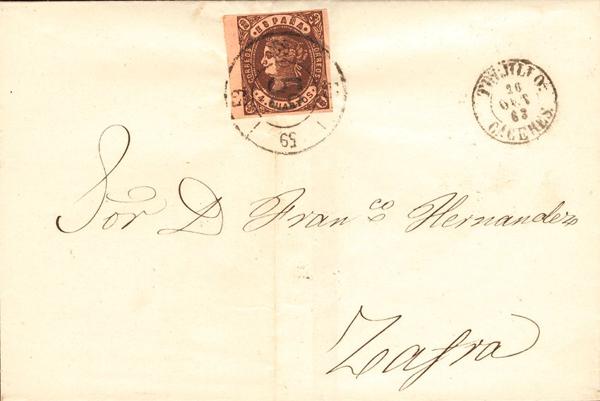 ESPAÑA
CORREOS
CORREOS
4 CUARTOS
59
TRUJILLO
26
OCT
63
CACERES
Sor D Fran.co Hernandez
Zafra